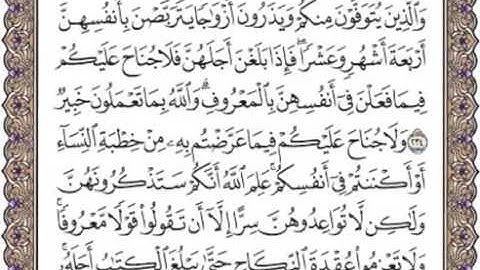 وَٱلَّذِينَ يُتَوَفَّوْنَ مِنكُمْ وَيَذَرُونَ أَزْوَٰجًا يَتَرَبَّصْنَ بِأَنفُسِهِنَّ
أَرْبَعَةَ أَشْهُرٍ وَعَشْرًا ۖ فَإِذَا بَلَغْنَ أَجَلَهُنَّ فَلَا جُنَاحَ عَلَيْكُمْ
فِيمَا فَعَلْنَ فِىٓ أَنفُسِهِنَّ بِٱلْمَعْرُوفِ ۗ وَٱللَّهُ بِمَا تَعْمَلُونَ خَبِيرٌ
٢٣٤ وَلَا جُنَاحَ عَلَيْكُمْ فِيمَا عَرَّضْتُم بِهِۦ مِنْ خِطْبَةِ ٱلنِّسَآءِ
أَوْ أَكْنَنتُمْ فِىٓ أَنفُسِكُمْ ۚ عَلِمَ ٱللَّهُ أَنَّكُمْ سَتَذْكُرُونَهُنَّ
وَلَٰكِن لَّا تُوَاعِدُوهُنَّ سِرًّا إِلَّآ أَن تَقُولُوا۟ قَوْلًا مَّعْرُوفًا ۚ
وَلَا تَعْزِمُوا۟ عُقْدَةَ ٱلنِّكَاحِ حَتَّىٰ يَبْلُغَ ٱلْكِتَٰبُ أَجَلَهُۥ ۚ